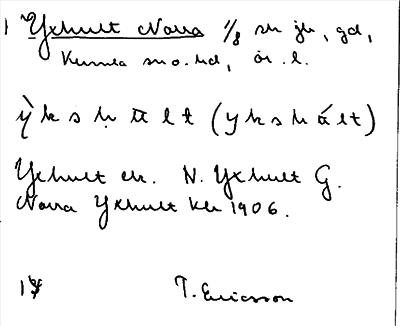 Yxhult Norra 1/8 sk jb, gd,
Kumla sn o. hd, ör. l.
ỳ k s ḥ ū l t (y k s h á l t)
Yxhult ek. N. Yxhult G.
Norra Yxhult kb 1906.
T. Ericsson